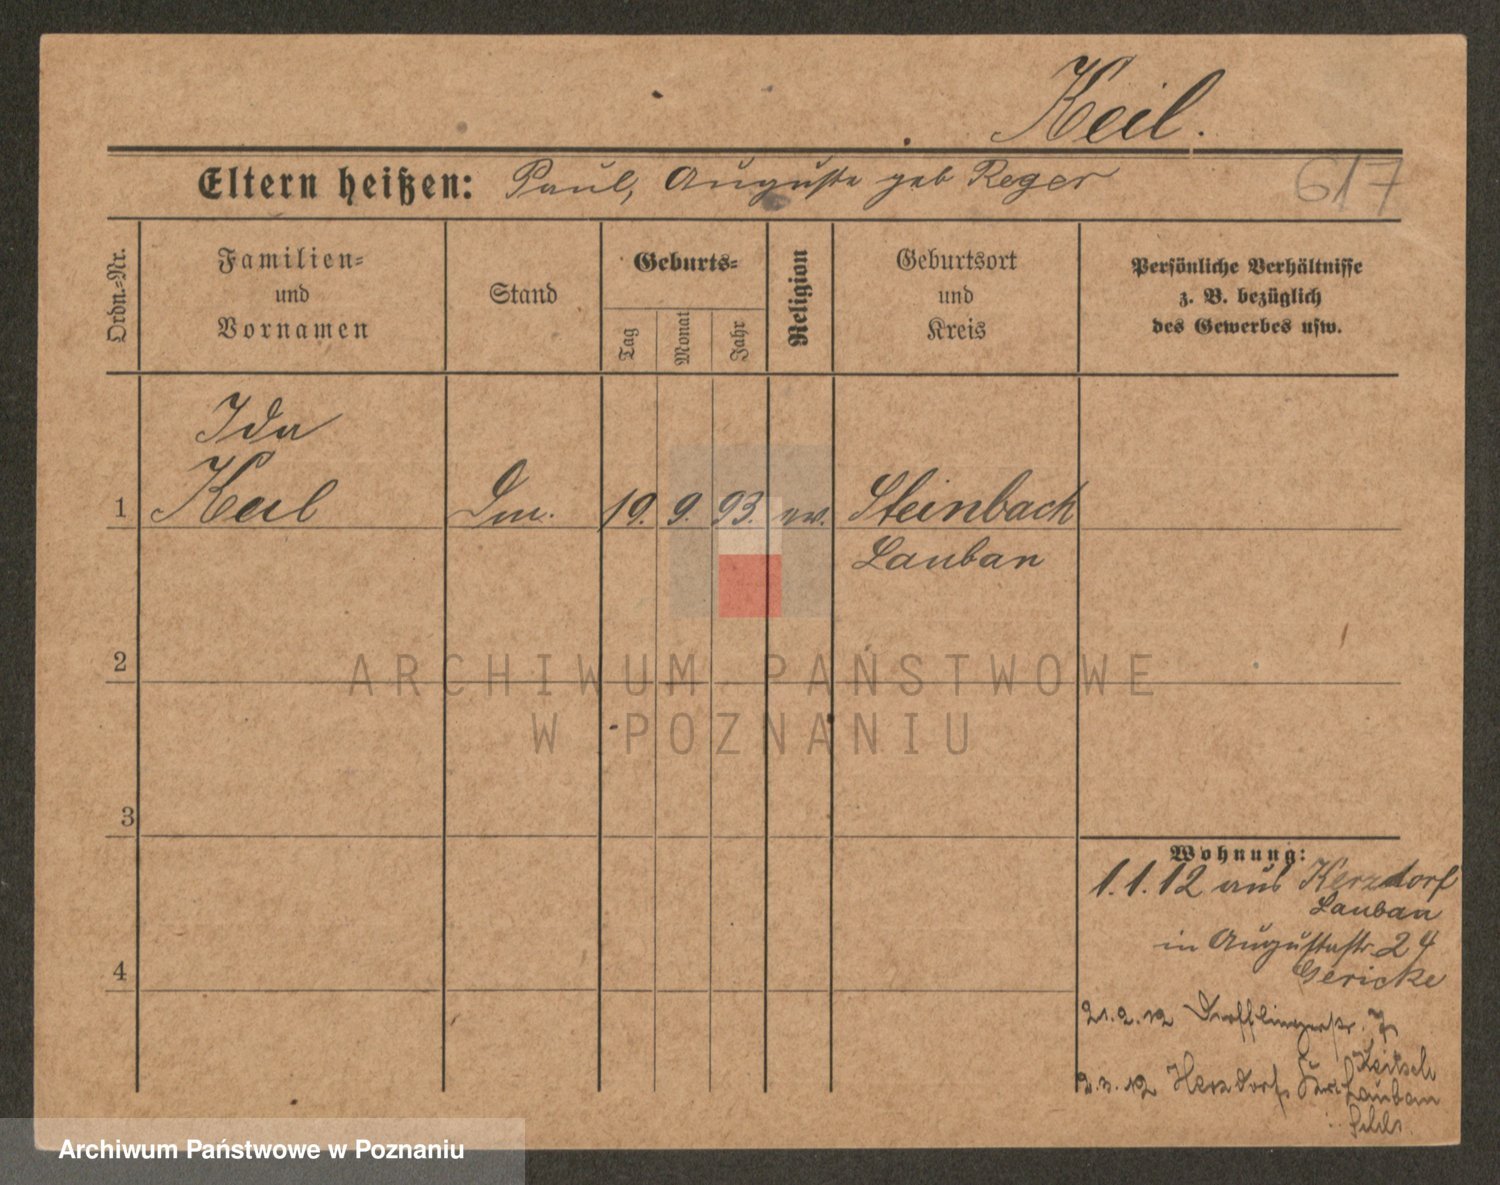 Keil.
Eltern heißen: Paul, Auguste geb Reger
617
Ordn.-Nr.
Familien-
und
Vornamen
Stand
Geburts-
Tag
Monat
Jahr
Religion
Geburtsort
und
Kreis
Persönliche Verhältnisse
z. B. bezüglich
des Gewerbes usw.
Ida
1 Keil 19. 9. 93. ev. Steinbach
Lauban
2
3
4
Wohnung:
1.1.12 aus Kerzdorf
Lauban
in Augustastr. 24
Gericke
21.2.12 Derfflingerstr. 7
2.3.12 Kerzdorf
Lauban
ARCHIWUM PAŃSTWOWE
W POZNANIU
Archiwum Państwowe w Poznaniu